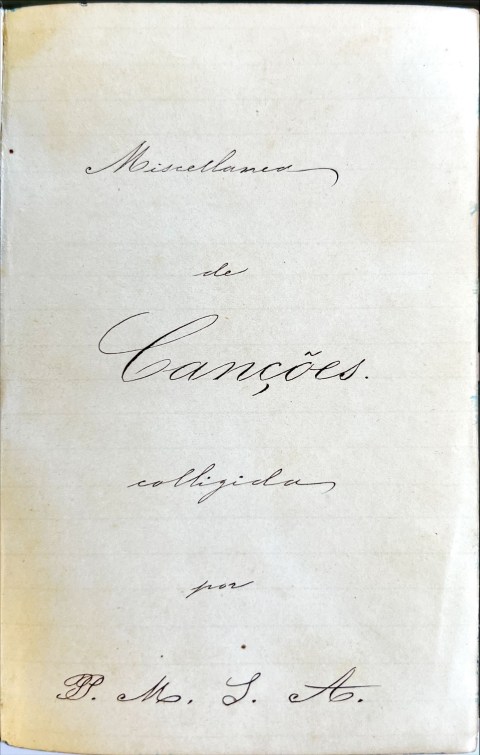 Miscellanea
de
Canções.
colligida
por
P. M. S. A.